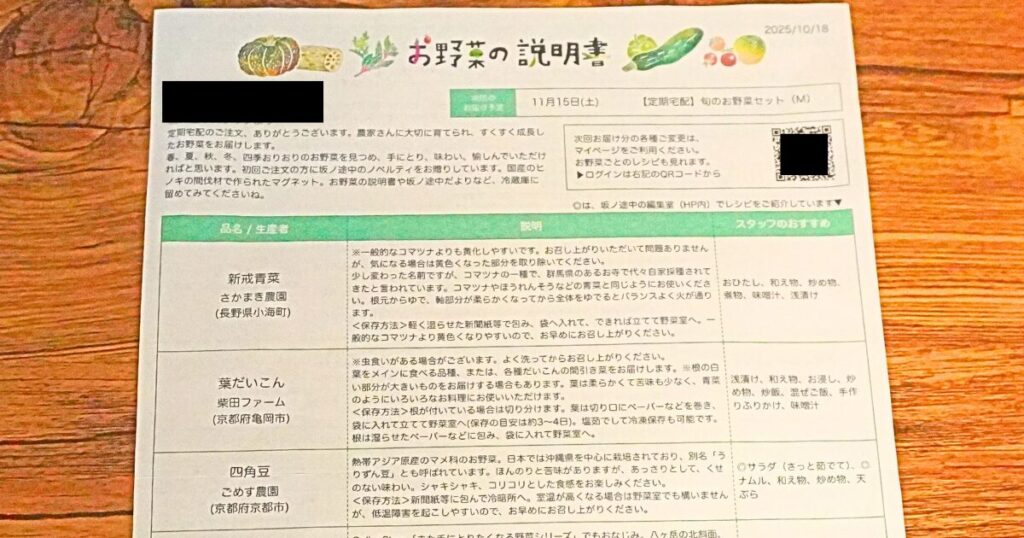 2025/10/18
お野菜の説明書
次回の
お届け予定
11月15日(土)
【定期宅配】旬のお野菜セット（M）
定期宅配のご注文、ありがとうございます。農家さんに大切に育てられ、すくすく成長し
たお野菜をお届けします。
春、夏、秋、冬、四季おりおりのお野菜を見つめ、手にとり、味わい、愉しんでいただけ
ればと思います。初回ご注文の方に坂ノ途中のノベルティをお贈りしています。国産のヒ
ノキの間伐材で作られたマグネット。お野菜の説明書や坂ノ途中だよりなど、冷蔵庫に
留めてみてくださいね。
次回お届け分の各種ご変更は、
マイページをご利用ください。
お野菜ごとのレシピも見れます。
▶ログインは右記のQRコードから
◎は、坂ノ途中の編集室（HP内）でレシピをご紹介しています▼
品名 / 生産者
説明
スタッフのおすすめ
新戒青菜
さかまき農園
(長野県小海町)
※一般的なコマツナよりも黄化しやすいです。お召し上がりいただいて問題ありませ
んが、気になる場合は黄色くなった部分を取り除いてください。
少し変わった名前ですが、コマツナの一種で、群馬県のあるお寺で代々自家採種されて
きたと言われています。コマツナやほうれんそうなどの青菜と同じようにお使いくださ
い。根元からゆで、軸部分が柔らかくなってから全体をゆでるとバランスよく火が通り
ます。
＜保存方法＞軽く湿らせた新聞紙等で包み、袋へ入れて、できれば立てて野菜室へ。一
般的なコマツナより黄色くなりやすいので、お早めにお召し上がりください。
おひたし、和え物、炒め物、
煮物、味噌汁、浅漬け
葉だいこん
柴田ファーム
(京都府亀岡市)
※虫食いがある場合がございます。よく洗ってからお召し上がりください。
葉をメインに食べる品種、または、各種だいこんの間引き菜をお届けします。※根の白
い部分が大きいものをお届けする場合もあります。葉は柔らかくて苦味も少なく、青菜
のようにいろいろなお料理にお使いいただけます。
＜保存方法＞根が付いている場合は切り分けます。葉は切り口にペーパーなどを巻き、
袋に入れて立てて野菜室へ(保存の目安は約3〜4日)。塩茹でして冷凍保存も可能です。
根は湿らせたペーパーなどに包み、袋に入れて野菜室へ。
浅漬け、和え物、お浸し、炒
め物、炒飯、混ぜご飯、手作
りふりかけ、味噌汁
四角豆
ごめす農園
(京都府京都市)
熱帯アジア原産のマメ科のお野菜。日本では沖縄県を中心に栽培されており、別名「う
りずん豆」とも呼ばれています。ほんのりと苦味がありますが、あっさりとして、くせ
のない味わい。シャキシャキ、コリコリとした食感をお楽しみください。
＜保存方法＞新聞紙等に包んで冷暗所へ。室温が高くなる場合は野菜室でも構いません
が、低温障害を起こしやすいので、お早めにお召し上がりください。
◎サラダ（さっと茹でて）、◎
ナムル、和え物、炒め物、天
ぷら